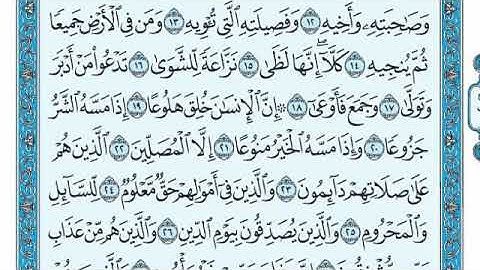 وَصَٰحِبَتِهِۦ وَأَخِيهِ ١٢ وَفَصِيلَتِهِ ٱلَّتِي تُـْٔوِيهِ ١٣ وَمَن فِي ٱلْأَرْضِ جَمِيعًا
ثُمَّ يُنجِيهِ ١٤ كَلَّآ ۖ إِنَّهَا لَظَىٰ ١٥ نَزَّاعَةً لِّلشَّوَىٰ ١٦ تَدْعُوا۟ مَنْ أَدْبَرَ
وَتَوَلَّىٰ ١٧ وَجَمَعَ فَأَوْعَىٰٓ ١٨ ۞ إِنَّ ٱلْإِنسَٰنَ خُلِقَ هَلُوعًا ١٩ إِذَا مَسَّهُ ٱلشَّرُّ
جَزُوعًا ٢٠ وَإِذَا مَسَّهُ ٱلْخَيْرُ مَنُوعًا ٢١ إِلَّا ٱلْمُصَلِّينَ ٢٢ ٱلَّذِينَ هُمْ
عَلَىٰ صَلَاتِهِمْ دَآئِمُونَ ٢٣ وَٱلَّذِينَ فِيٓ أَمْوَٰلِهِمْ حَقٌّ مَّعْلُومٌ ٢٤ لِّلسَّآئِلِ
وَٱلْمَحْرُومِ ٢٥ وَٱلَّذِينَ يُصَدِّقُونَ بِيَوْمِ ٱلدِّينِ ٢٦ وَٱلَّذِينَ هُم مِّنْ عَذَابِ